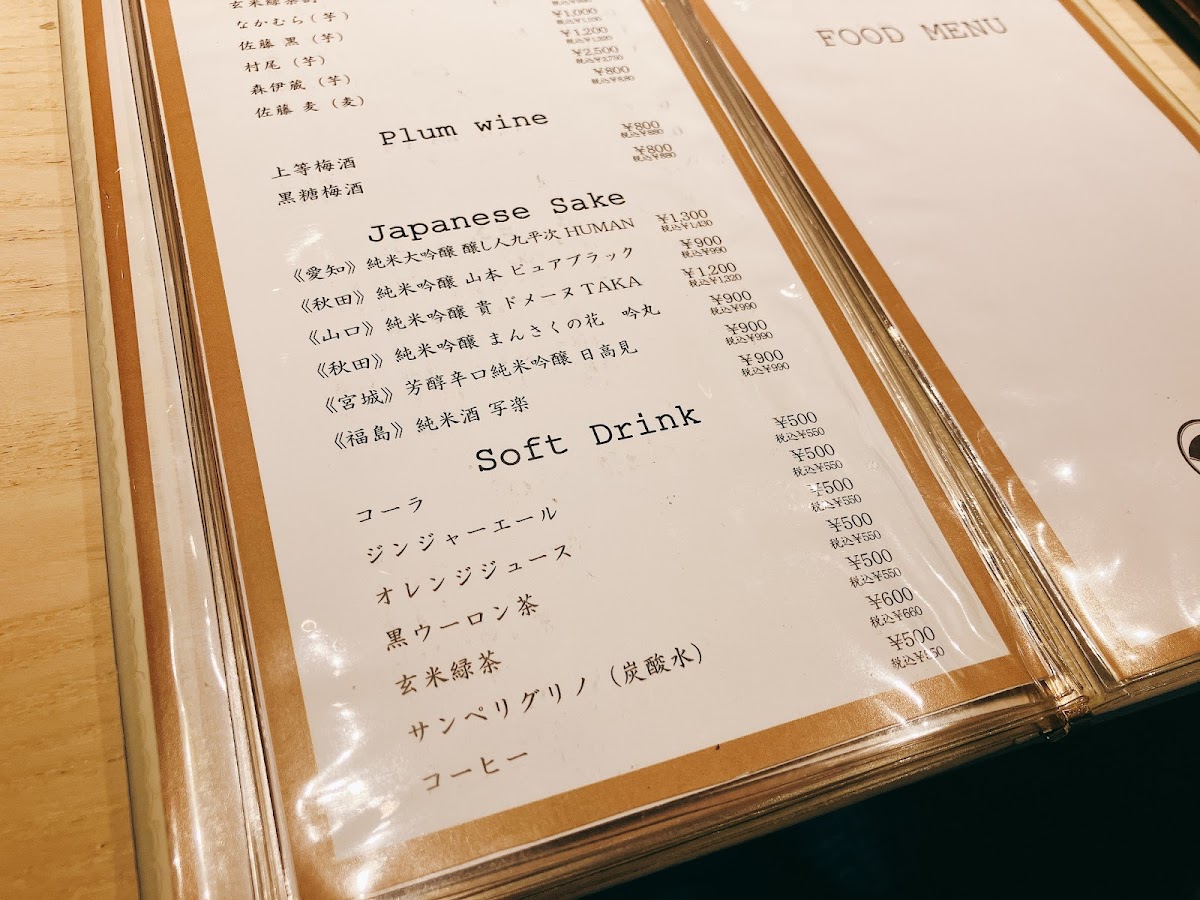 玄米緑茶割
なかむら（芋） ¥1,000
佐藤 黒（芋） ¥1,200
税込¥1,320
村尾（芋） ¥2,500
税込¥2,750
森伊蔵（芋） ¥800
税込¥880
佐藤 麦（麦）
Plum wine
上等梅酒 ¥800
税込¥880
黒糖梅酒 ¥800
税込¥880
Japanese Sake
《愛知》純米大吟醸 醸し人九平次 HUMAN ¥1,300
税込¥1,430
《秋田》純米吟醸 山本 ピュアブラック ¥900
税込¥990
《山口》純米吟醸 貴 ドメーヌTAKA ¥1,200
税込¥1,320
《秋田》純米吟醸 まんさくの花 吟丸 ¥900
税込¥990
《宮城》芳醇辛口純米吟醸 日高見 ¥900
税込¥990
《福島》純米酒 写楽 ¥900
税込¥990
Soft Drink
コーラ ¥500
税込¥550
ジンジャーエール ¥500
税込¥550
オレンジジュース ¥500
税込¥550
黒ウーロン茶 ¥500
税込¥550
玄米緑茶 ¥500
税込¥550
サンペリグリノ（炭酸水） ¥600
税込¥660
コーヒー ¥500
税込¥550
FOOD MENU